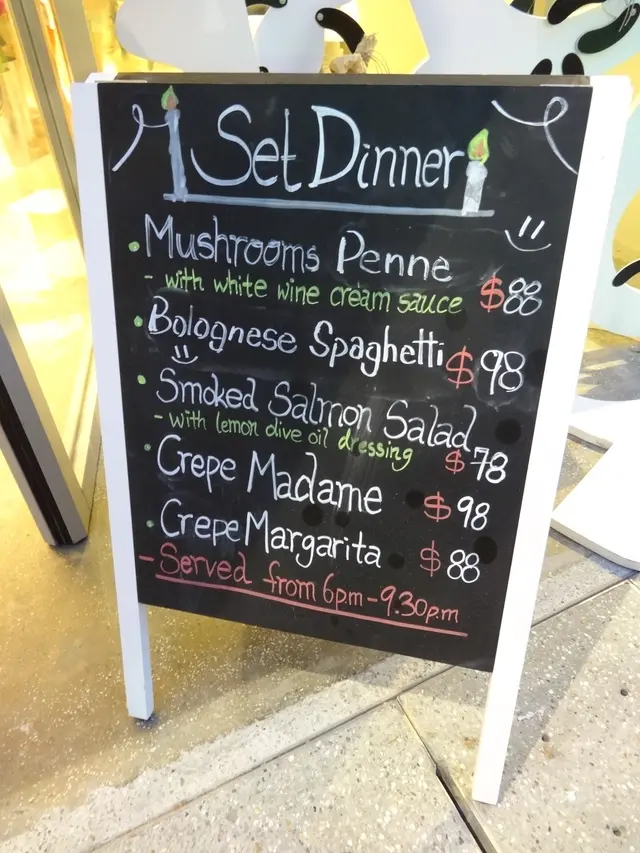 Set Dinner
• Mushrooms Penne
- with white wine cream sauce $88
• Bolognese Spaghetti $98
• Smoked Salmon Salad
- with lemon olive oil dressing $78
• Crepe Madame $98
• Crepe Margarita $88
- Served from 6pm - 9.30p.m